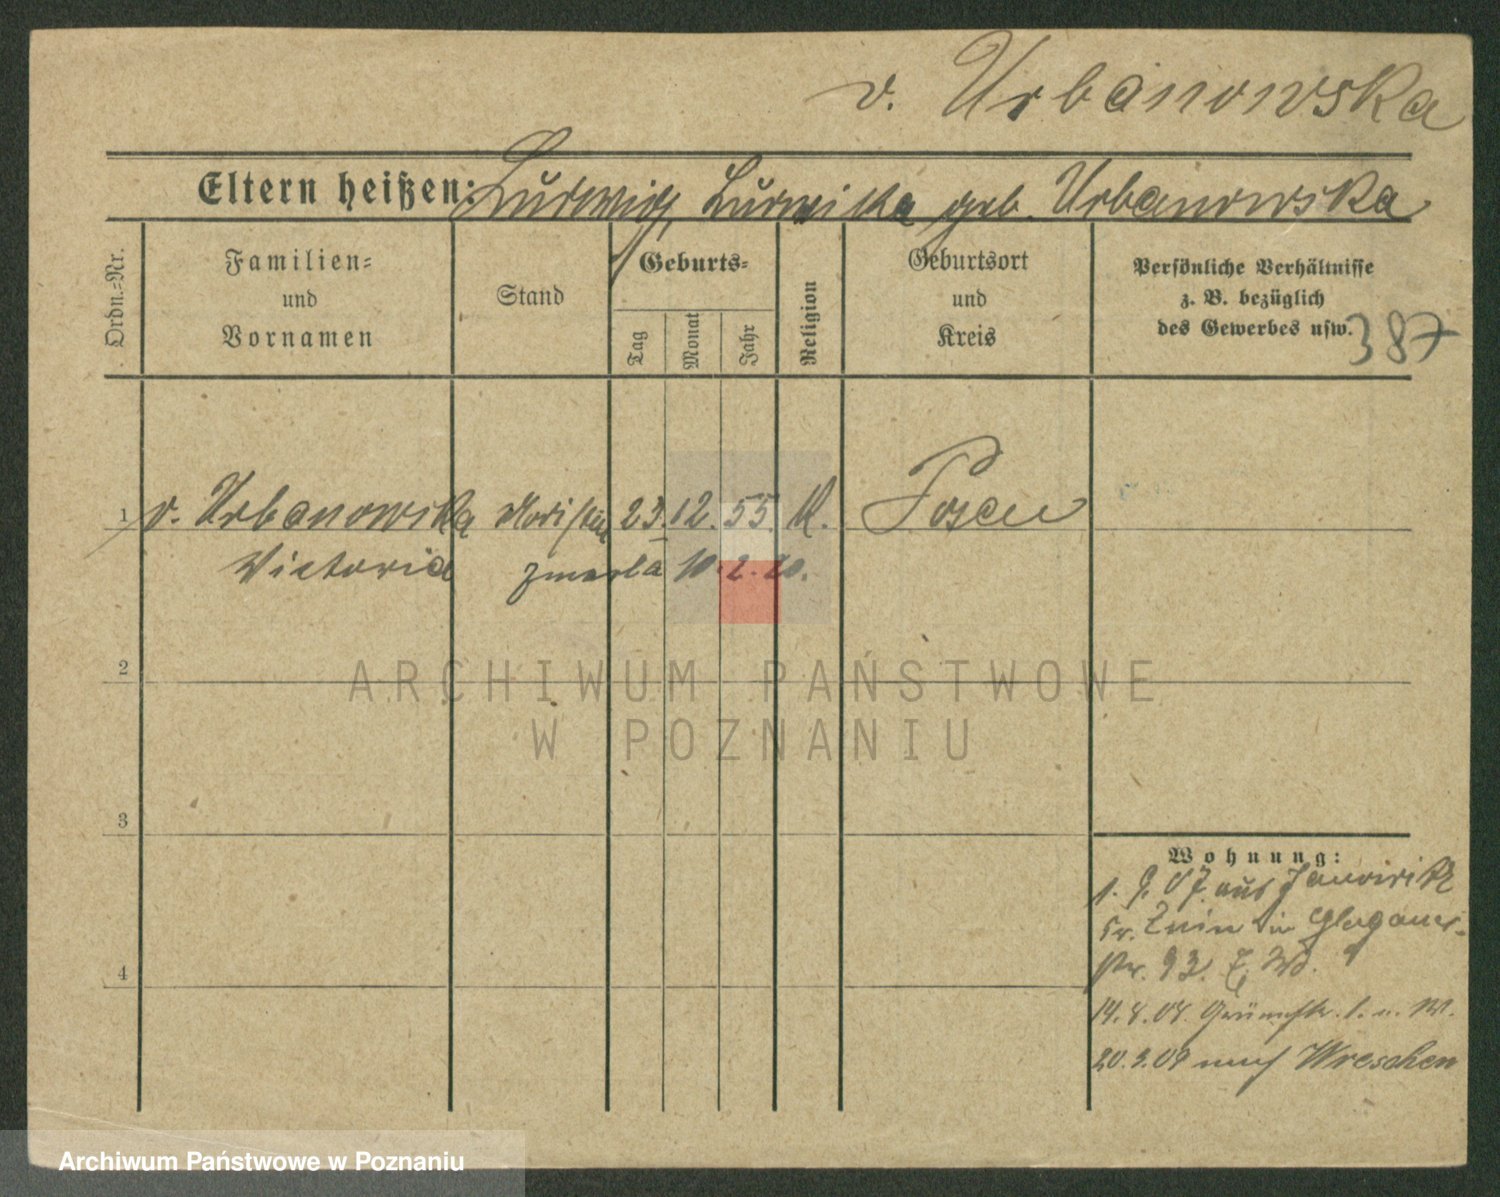 v. Urbanowska
Eltern heißen: Ludwig, Ludwika geb. Urbanowska
Ordn.-Nr.
Familien-
und
Vornamen
Stand
Geburts-
Tag
Monat
Jahr
Religion
Geburtsort
und
Kreis
Persönliche Verhältnisse
z. B. bezüglich
des Gewerbes usw.
387
1 v. Urbanowska Modistin 23. 12. 55. K. Posen
Victoria zmarła 10. 2. 20.
2
ARCHIWUM PAŃSTWOWE
W POZNANIU
3
Wohnung:
1. 9. 07 aus
Kr. Znin in Glogauer-
str. 93.
14. 8. 08.
20. 3. 09 nach Wreschen
4
Archiwum Państwowe w Poznaniu